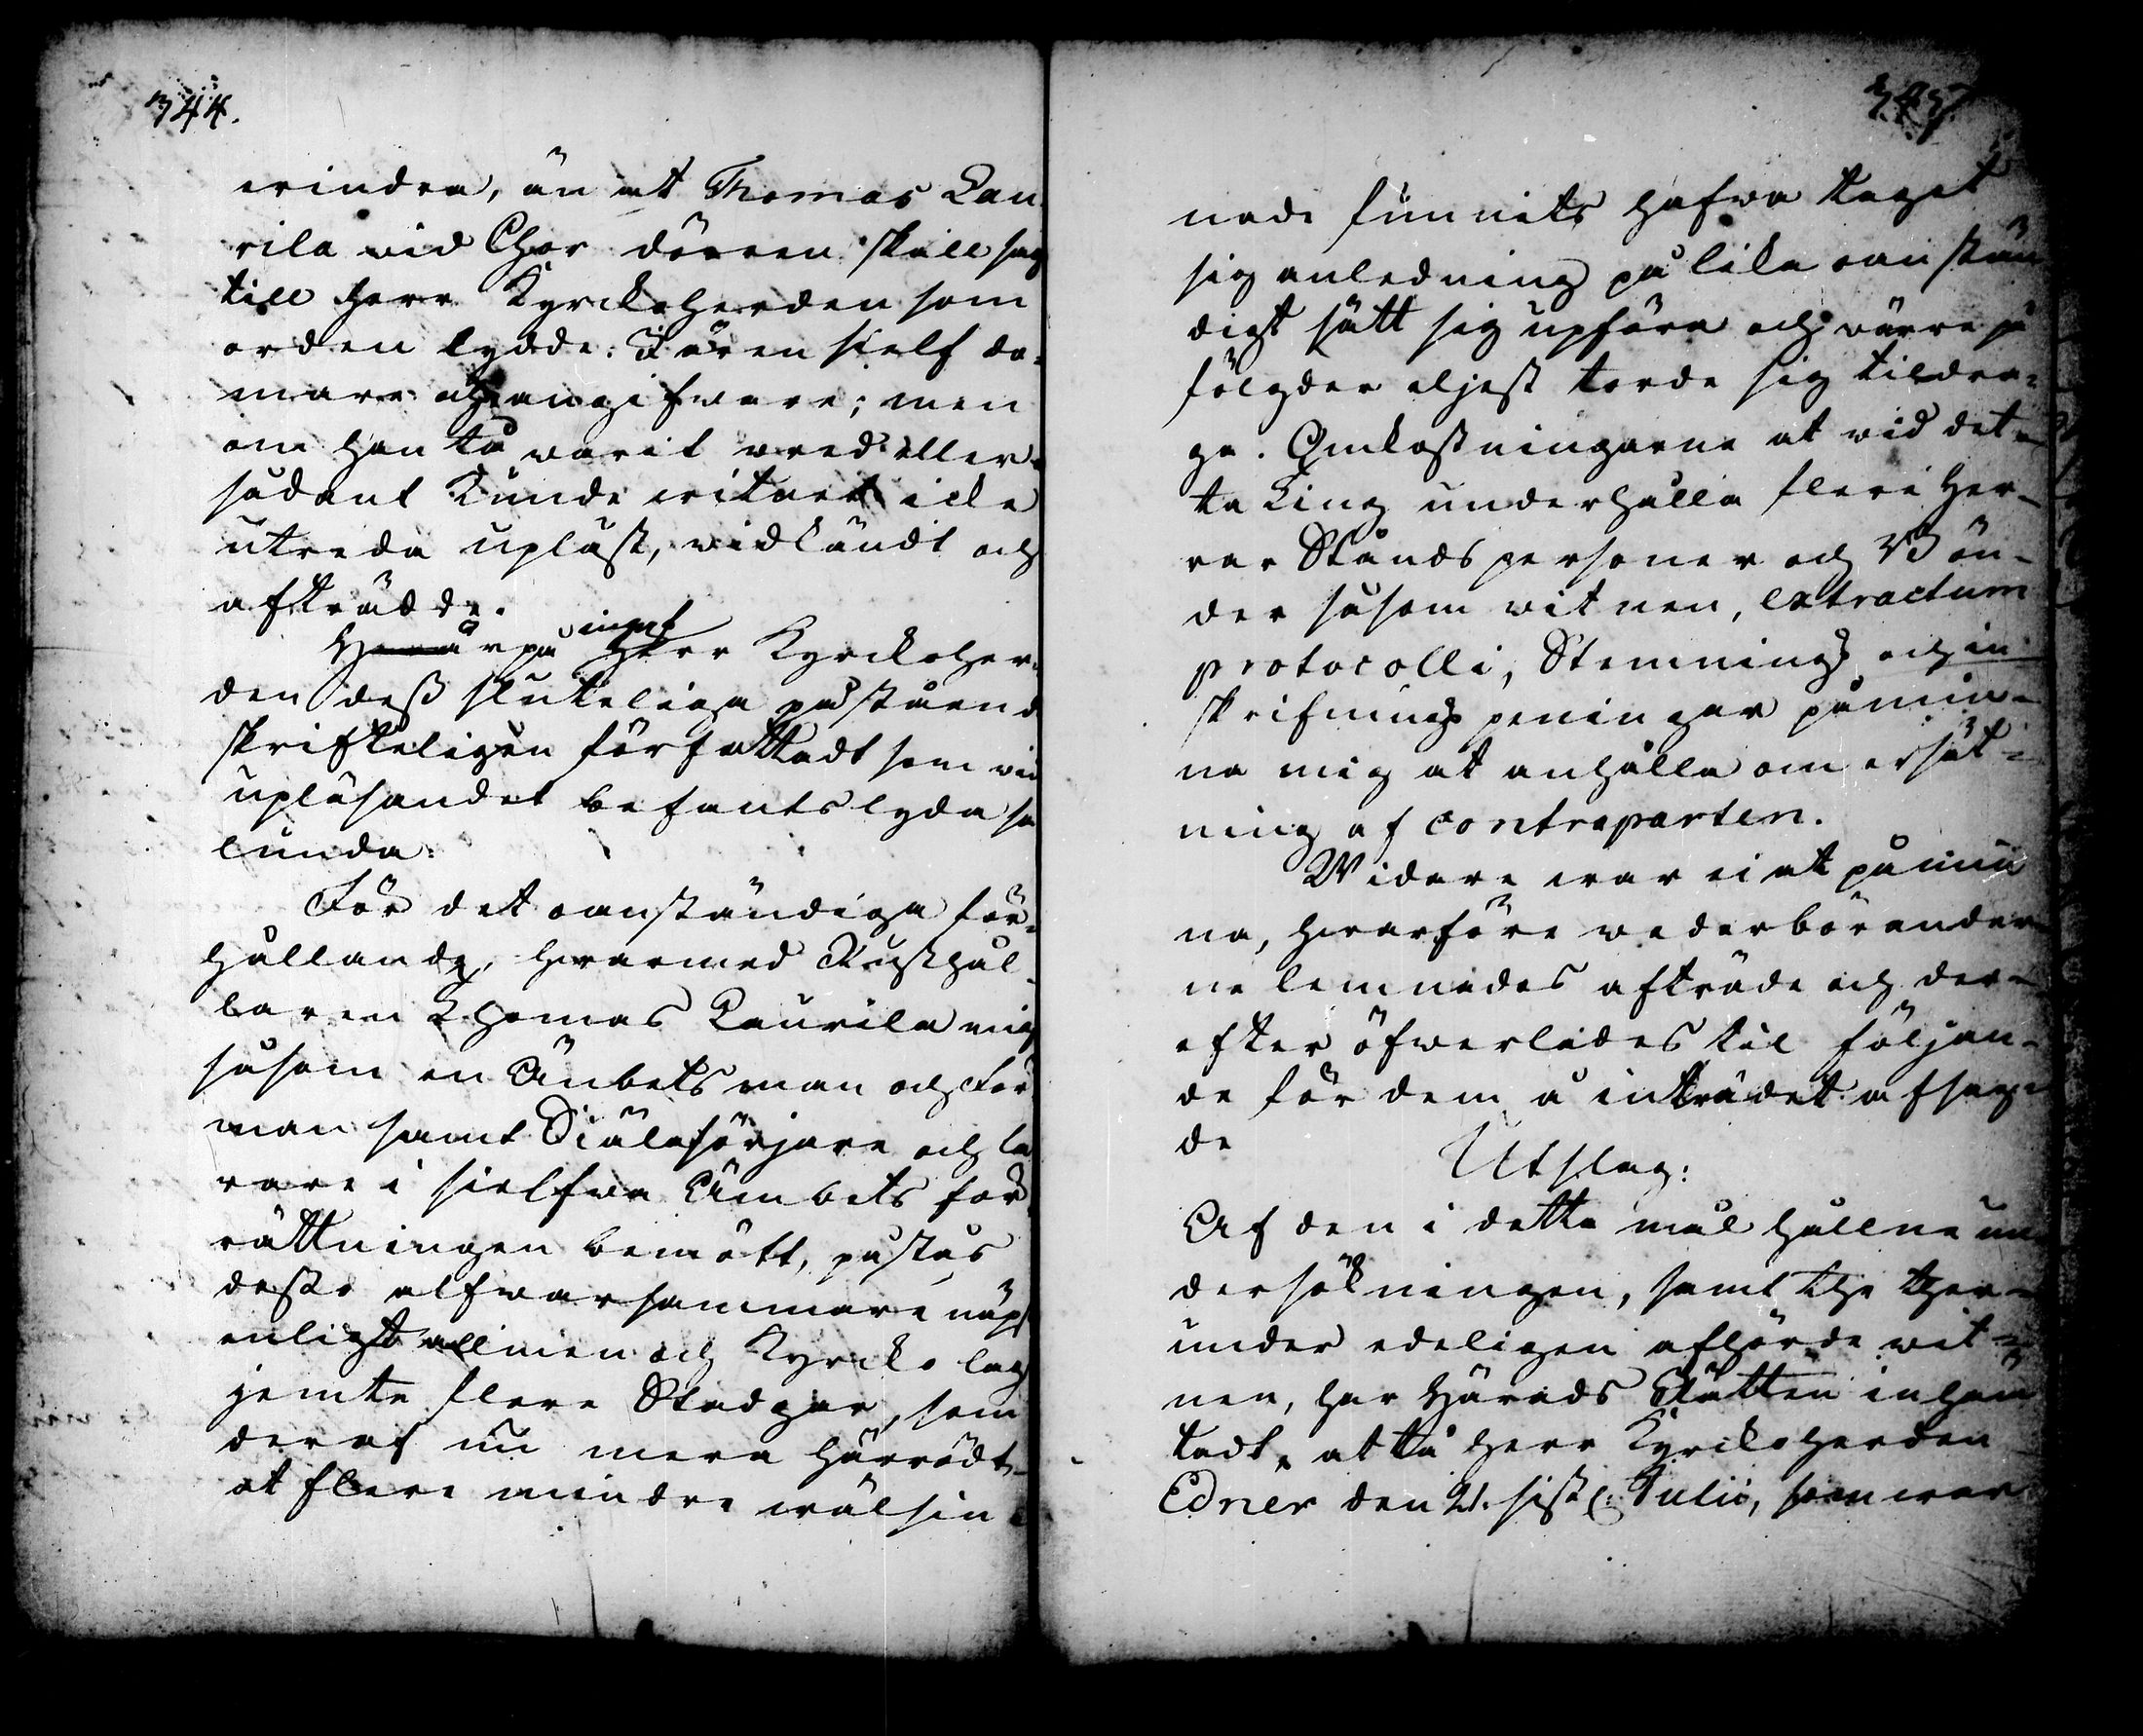 344.
erindra, än at Thomas Lau
rila vid Chor dörren skall sag
till herr Kyrckoherden som
orden lydde: I ären sielf do-
mare och angifware; men
om han tå warit wred eller
sådant kunde witnet icke
utreda upläst, widkändt och
afträdde.
Herpå ingaf Herr Kyrckoher-
den dess sluteliga påståend
skrifteligen författadt som wid
upläsandet befants lyda så
lunda:
För det oanständiga för-
hållande, hwarmed Rusthål-
laren Thomas Laurila mig
såsom en Ämbetsman och För
man samt Siälasörjare och lä
rare i sielfwa Ämbets för
rättningen bemött, påstås
desto alfwarsammare näpst
enligt allmen och Kyrcko lag
jemte flere Stadgar, som
deraf nu mera härrödt
at flere mindre wälsin-
nade funnits hafwa taget
sig anledning på lika oanstän
digt sätt sig upföra och wärre på
fölgder eljest torde sig tildra-
ga. Omkostningarne at wid det-
ta Ting underhålla flere Her-
rar Ståndspersoner och Bön-
der såsom witnen, extractum
protocolli, Stemnings och in
skrifnings peningar påmin-
na mig at anhålla om ersät-
ning af contraparten.
Widare war ei at påmin
na, hwarföre wederbörander-
ne lemnades afträde och der-
efter öfwerlades til följan-
de för dem å inträdet afsag-
de
Utslag:
Af den i detta mål hållne un
dersökningen, samt the ther-
under edeligen afhörde wit-
nen, har Härads Rätten inhäm
tadt, at tå Herr Kyrckoherden
Edner den 21. sistl: Julii, som war